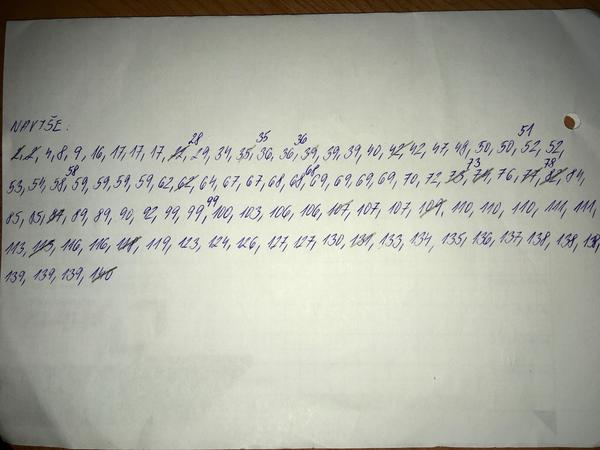 NAVÝŠE:
2, 2, 4, 8, 9, 16, 17, 17, 17, 28, 29, 34, 35, 35, 36, 36, 36, 39, 39, 39, 40, 42, 42, 47, 49, 50, 50, 51, 52, 52,
53, 54, 58, 58, 59, 59, 59, 59, 62, 62, 64, 67, 67, 68, 68, 68, 69, 69, 69, 69, 70, 72, 73, 76, 77, 78, 82, 84,
85, 85, 87, 89, 89, 90, 92, 99, 99, 99, 100, 103, 106, 106, 107, 107, 107, 109, 110, 110, 110, 111, 111,
113, 113, 116, 116, 118, 119, 123, 124, 126, 127, 127, 130, 131, 133, 134, 135, 136, 137, 138, 138, 138,
139, 139, 139, 140